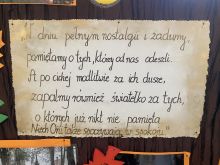 "W dniu pełnym nostalgii i zadumy,
pamiętamy o tych, którzy od nas odeszli.
A po cichej modlitwie za ich dusze,
zapalmy również światełko za tych,
o których już nikt nie pamięta.
Niech Oni także spoczywają w spokoju"